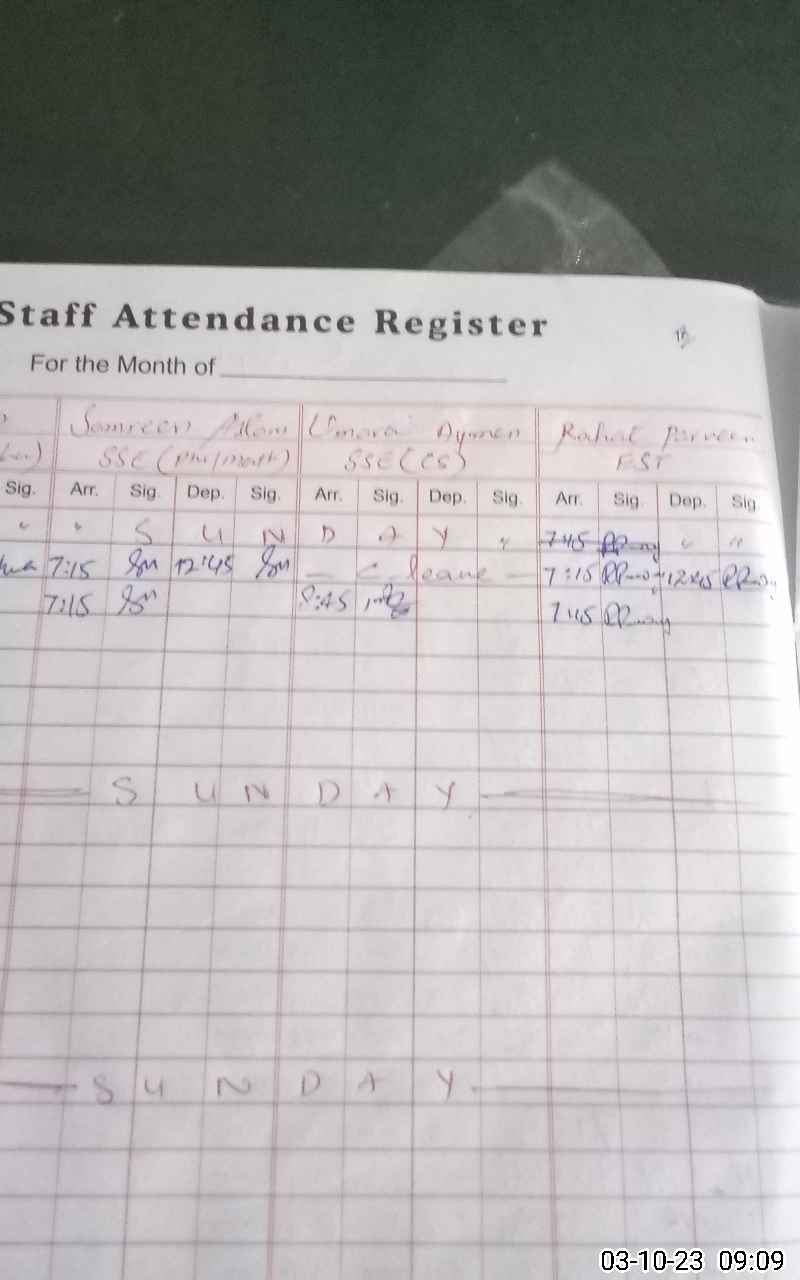 Staff Attendance Register
For the Month of
Samreen Aslam Umara Aymen Rahat Parveen
SSE (Phi/math) SSE (CS) EST
Sig. Arr. Sig. Dep. Sig. Arr. Sig. Dep. Sig. Arr. Sig. Dep. Sig.
" " S U N D A Y " 7:45 " "
7:15 12:45 — C leave — 7:15 12:45
7:15 8:45 7:45
S U N D A Y
S U N D A Y
03-10-23 09:09